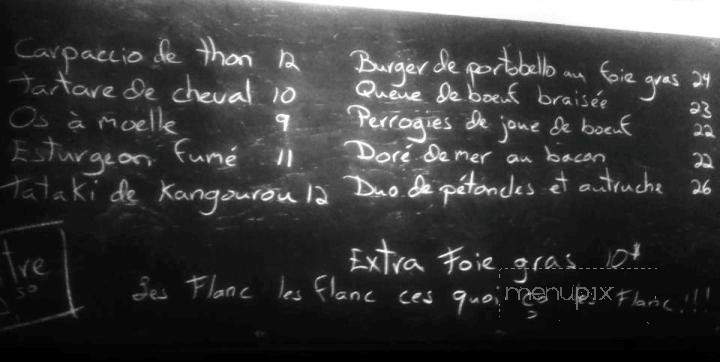 Carpaccio de thon 12
Tartare de cheval 10
Os à moelle 9
Esturgeon fumé 11
Tataki de Kangourou 12
Burger de portobello au foie gras 24
Queue de boeuf braisée 23
Perrogies de joue de boeuf 22
Doré de mer au bacon 22
Duo de pétoncles et autruche 26
Extra Foie gras 10$
tre
50
Flanc les flanc ces quoi Flanc!!!
menupix